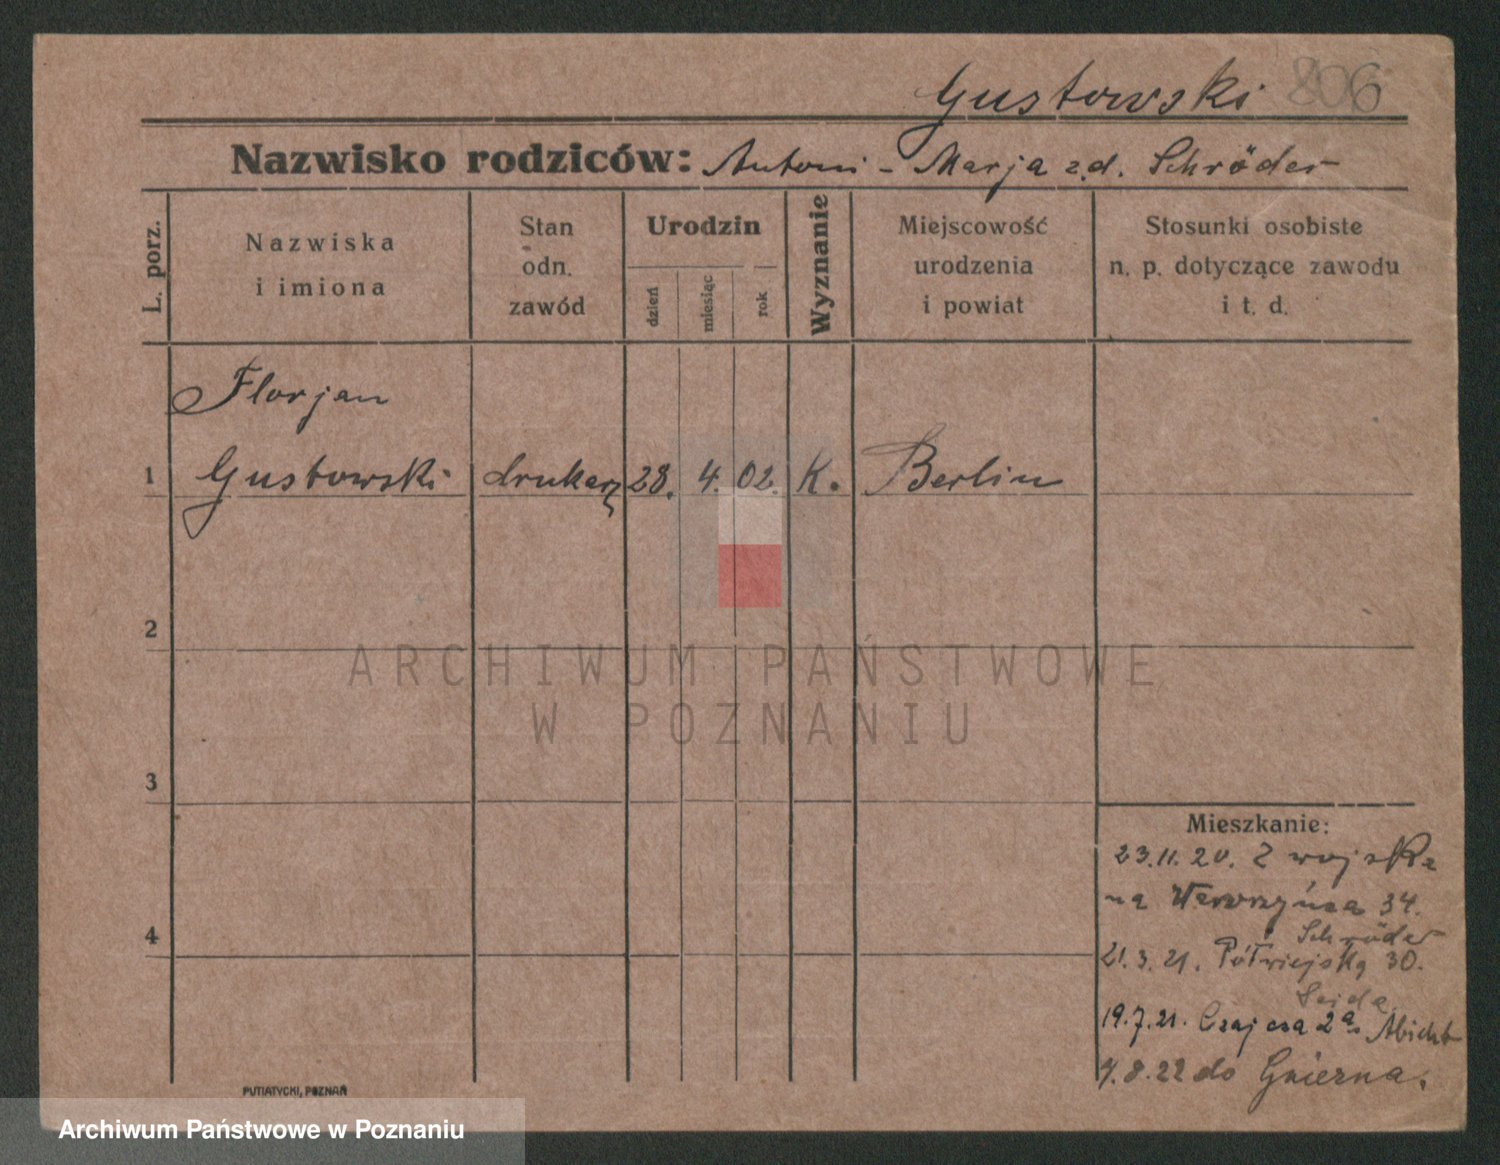 Gustowski 806
Nazwisko rodziców: Antoni - Marja z.d. Schröder
L. porz.
Nazwiska
i imiona
Stan
odn.
zawód
Urodzin
dzień
miesiąc
rok
Wyznanie
Miejscowość
urodzenia
i powiat
Stosunki osobiste
n. p. dotyczące zawodu
i t. d.
Florjan
1 Gustowski drukarz 28. 4. 02. K. Berlin
2
ARCHIWUM PAŃSTWOWE
W POZNANIU
3
4
Mieszkanie:
23.11.20. Z wojska
na Wawrzyńca 34.
Schröder
21.3.21. Półwiejską 30.
19.7.21. Czajcza 2a Abicht
4.8.22 do Gniezna.
PUTIATYCKI, POZNAŃ
Archiwum Państwowe w Poznaniu